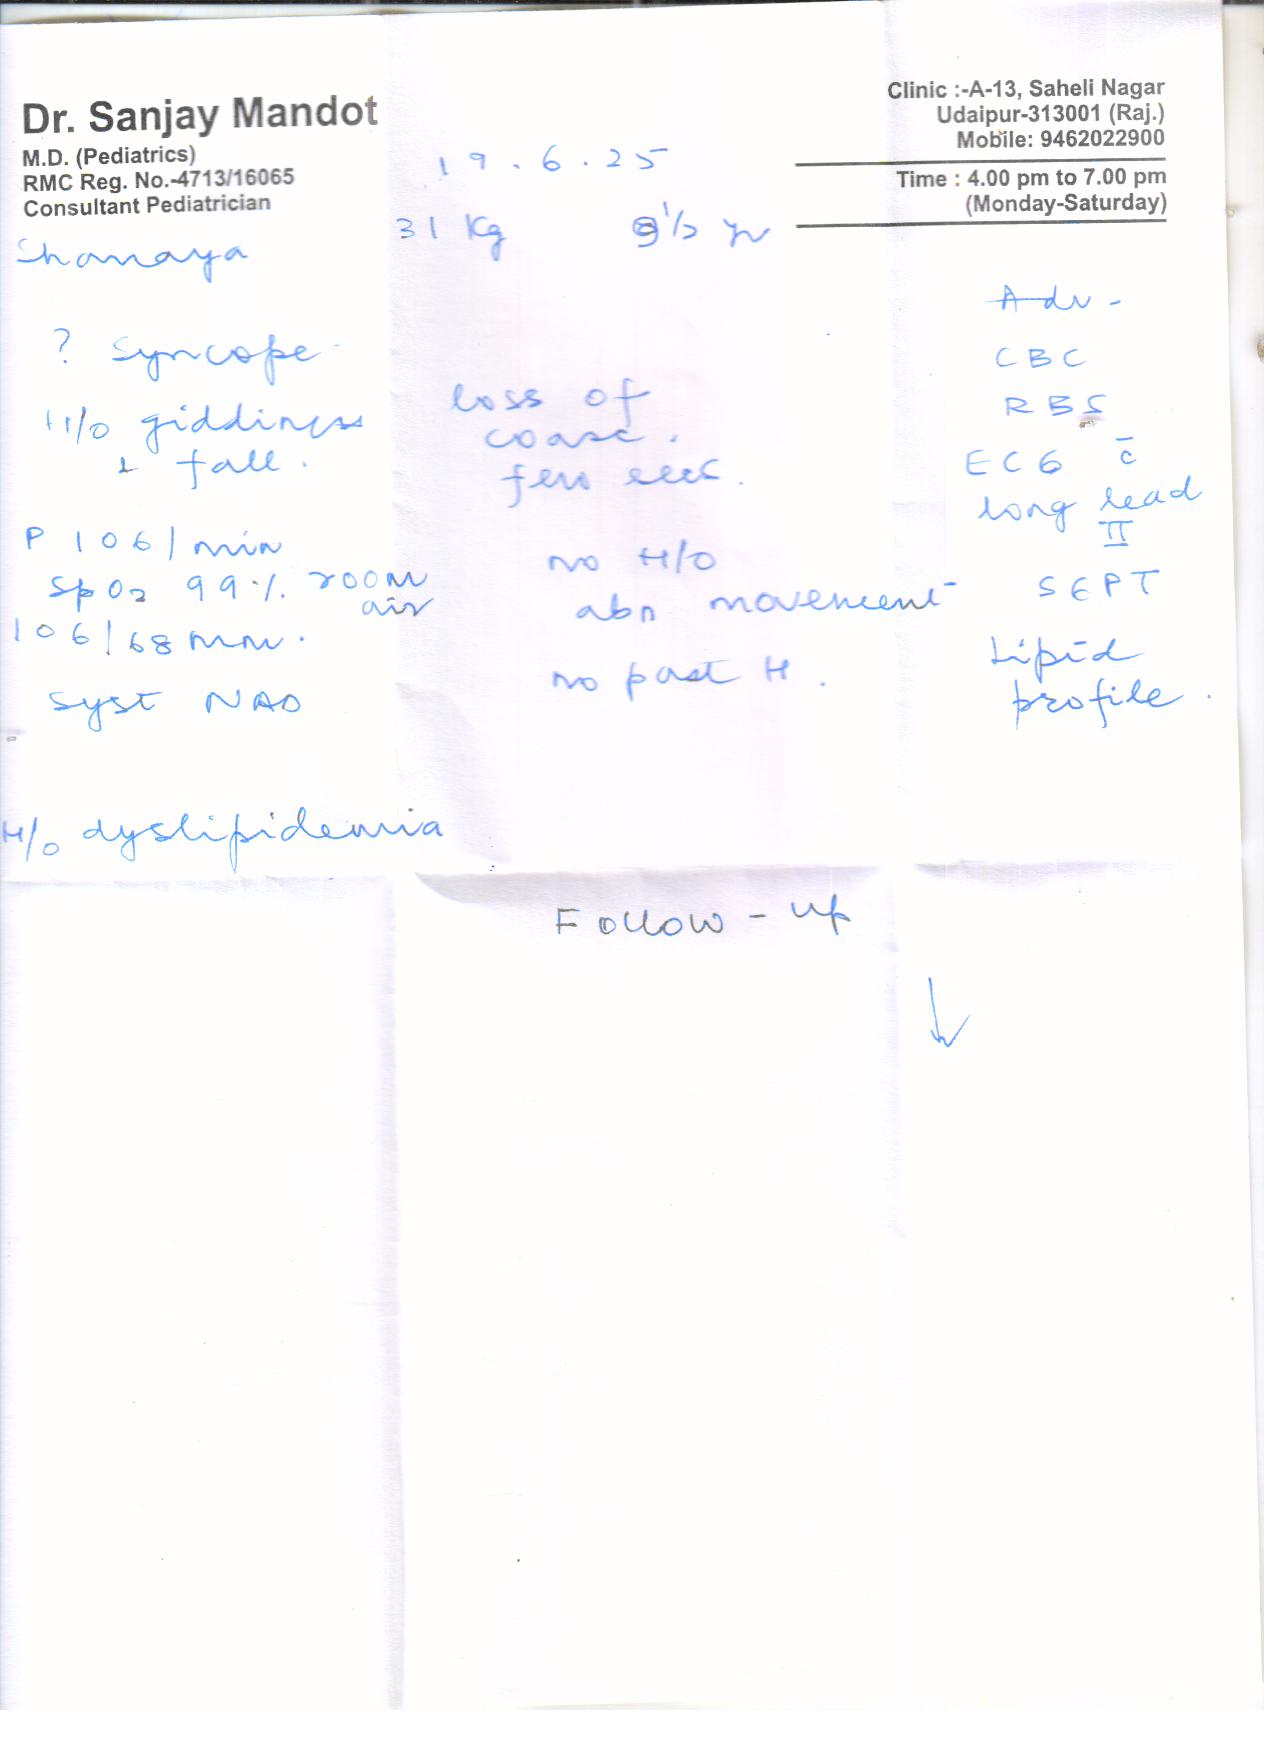 Dr. Sanjay Mandot
M.D. (Pediatrics)
RMC Reg. No.-4713/16065
Consultant Pediatrician
Clinic :-A-13, Saheli Nagar
Udaipur-313001 (Raj.)
Mobile: 9462022900
Time : 4.00 pm to 7.00 pm
(Monday-Saturday)
19.6.25
31 Kg 9½ yr
Shanaya
? Syncope
H/o giddiness
& fall.
P 106/min
SpO2 99% room
air
106/68 mm.
Syst NAD
H/o dyslipidemia
loss of
consc.
few secs.
no H/O
abn movement
no past H.
Adv -
CBC
RBS
ECG c̄
long lead
II
SGPT
Lipid
profile.
Follow-up